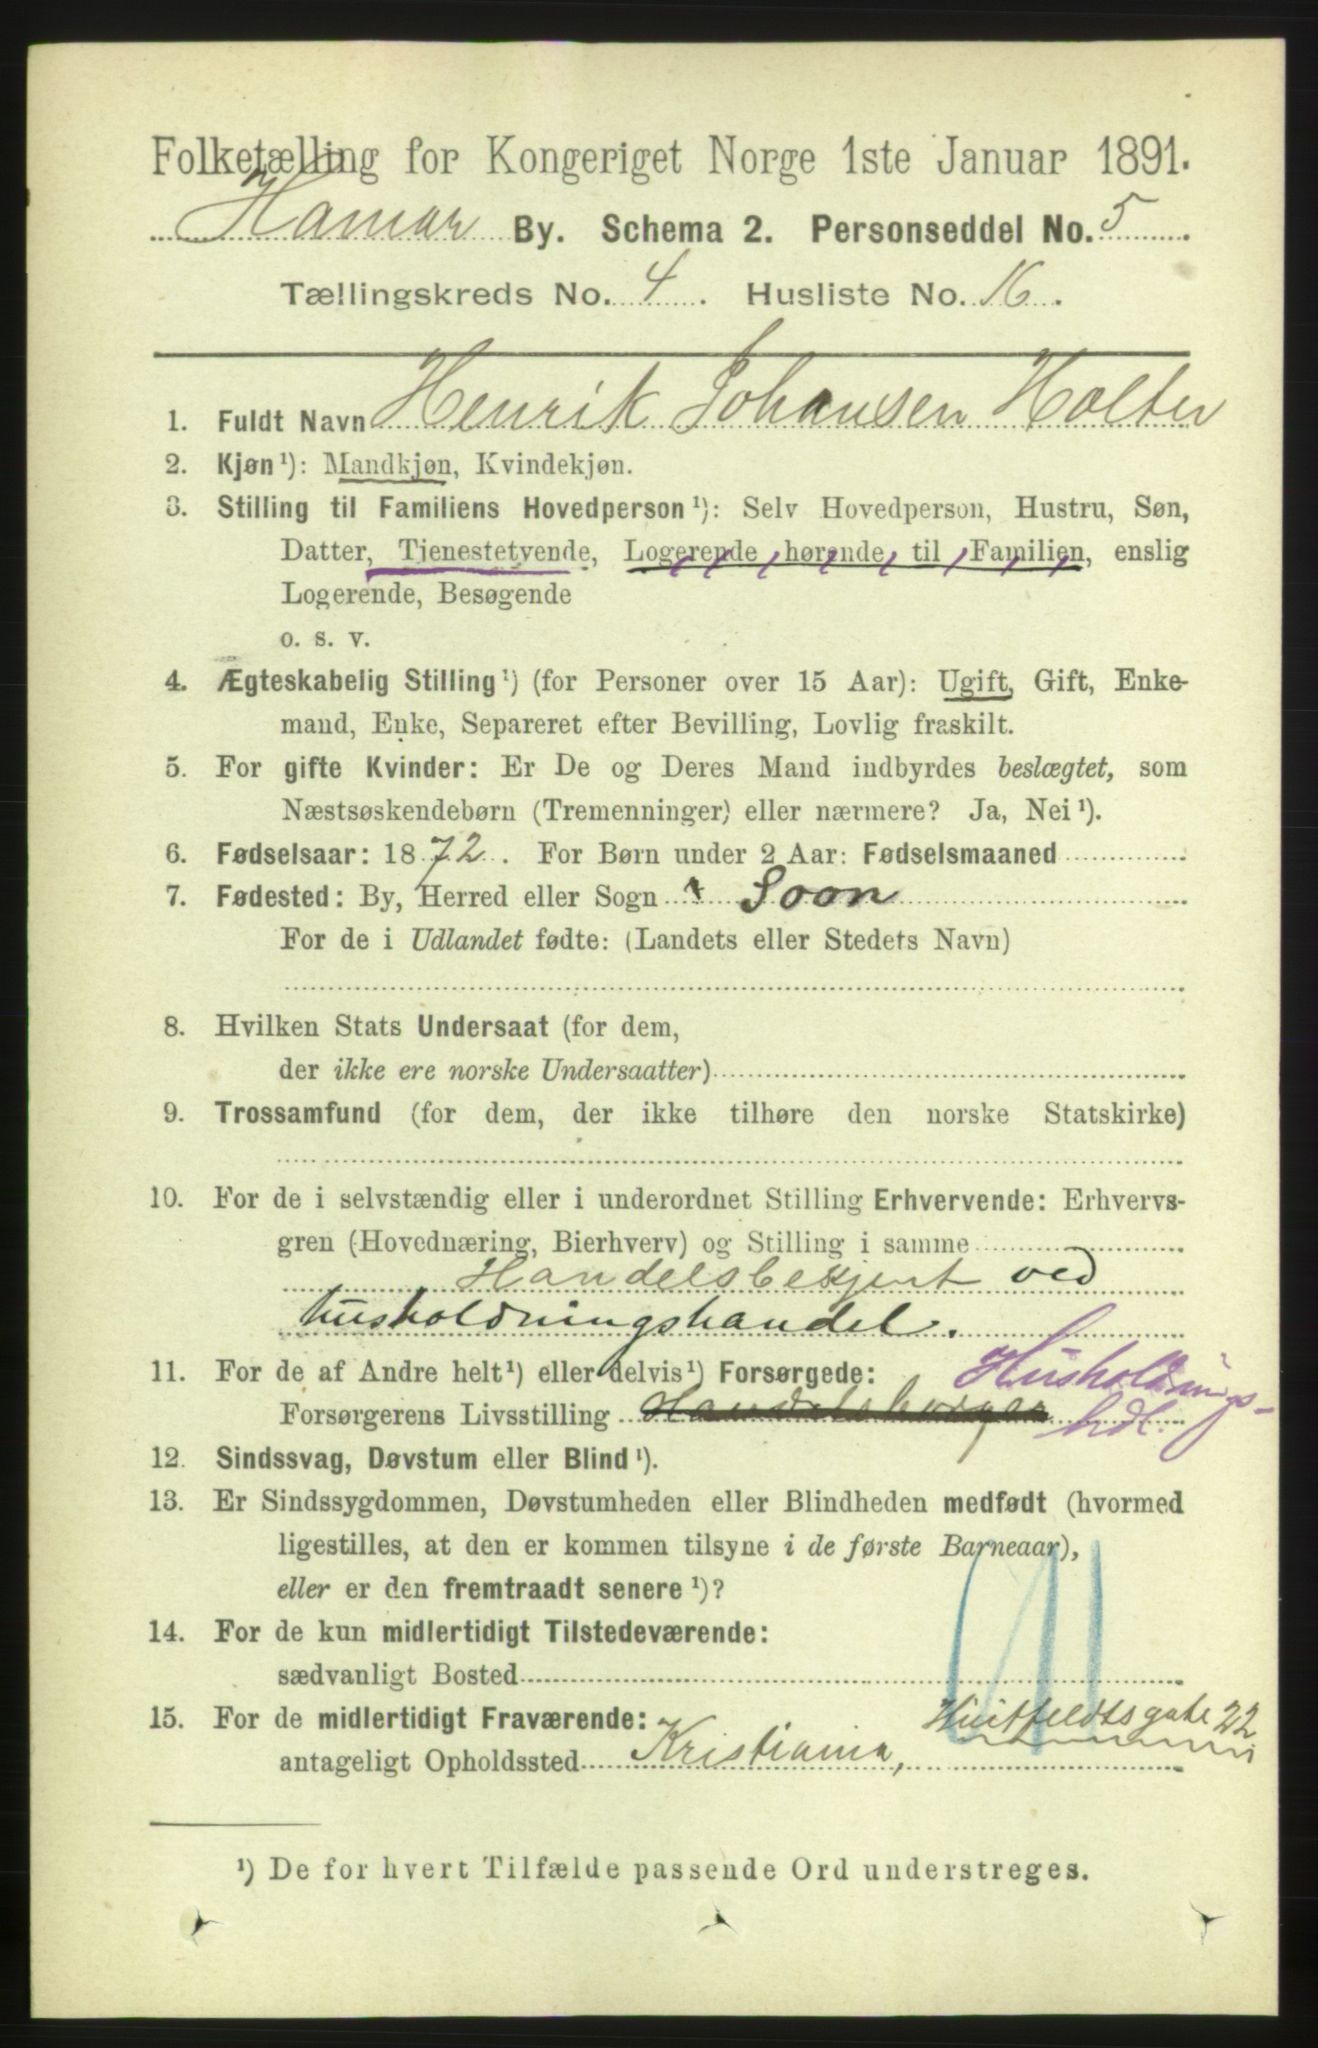 Folketælling for Kongeriget Norge 1ste Januar 1891.
Hamar By. Schema 2. Personseddel No. 5
Tællingskreds No. 4. Husliste No. 16.
1. Fuldt Navn Henrik Johansen Holter
2. Kjøn¹): Mandkjøn, Kvindekjøn.
3. Stilling til Familiens Hovedperson¹): Selv Hovedperson, Hustru, Søn,
Datter, Tjenestetyende, Logerende hørende til Familien, enslig
Logerende, Besøgende
o. s. v.
4. Ægteskabelig Stilling¹) (for Personer over 15 Aar): Ugift, Gift, Enke-
mand, Enke, Separeret efter Bevilling, Lovlig fraskilt.
5. For gifte Kvinder: Er De og Deres Mand indbyrdes beslægtet, som
Næstsøskendebørn (Tremenninger) eller nærmere? Ja, Nei¹).
6. Fødselsaar: 1872. For Børn under 2 Aar: Fødselsmaaned
7. Fødested: By, Herred eller Sogn Soon
For de i Udlandet fødte: (Landets eller Stedets Navn)
8. Hvilken Stats Undersaat (for dem,
der ikke ere norske Undersaatter)
9. Trossamfund (for dem, der ikke tilhøre den norske Statskirke)
10. For de i selvstændig eller i underordnet Stilling Erhvervende: Erhvervs-
gren (Hovednæring, Bierhverv) og Stilling i samme
Handelsbetjent ved
husholdningshandel.
11. For de af Andre helt¹) eller delvis¹) Forsørgede: Husholdnings-
Forsørgerens Livsstilling Handelsborger hdl.
12. Sindssvag, Døvstum eller Blind¹).
13. Er Sindssygdommen, Døvstumheden eller Blindheden medfødt (hvormed
ligestilles, at den er kommen tilsyne i de første Barneaar),
eller er den fremtraadt senere¹)?
14. For de kun midlertidigt Tilstedeværende:
sædvanligt Bosted
15. For de midlertidigt Fraværende: Huitfeldtsgate 22
antageligt Opholdssted Kristiania,
¹) De for hvert Tilfælde passende Ord understreges.